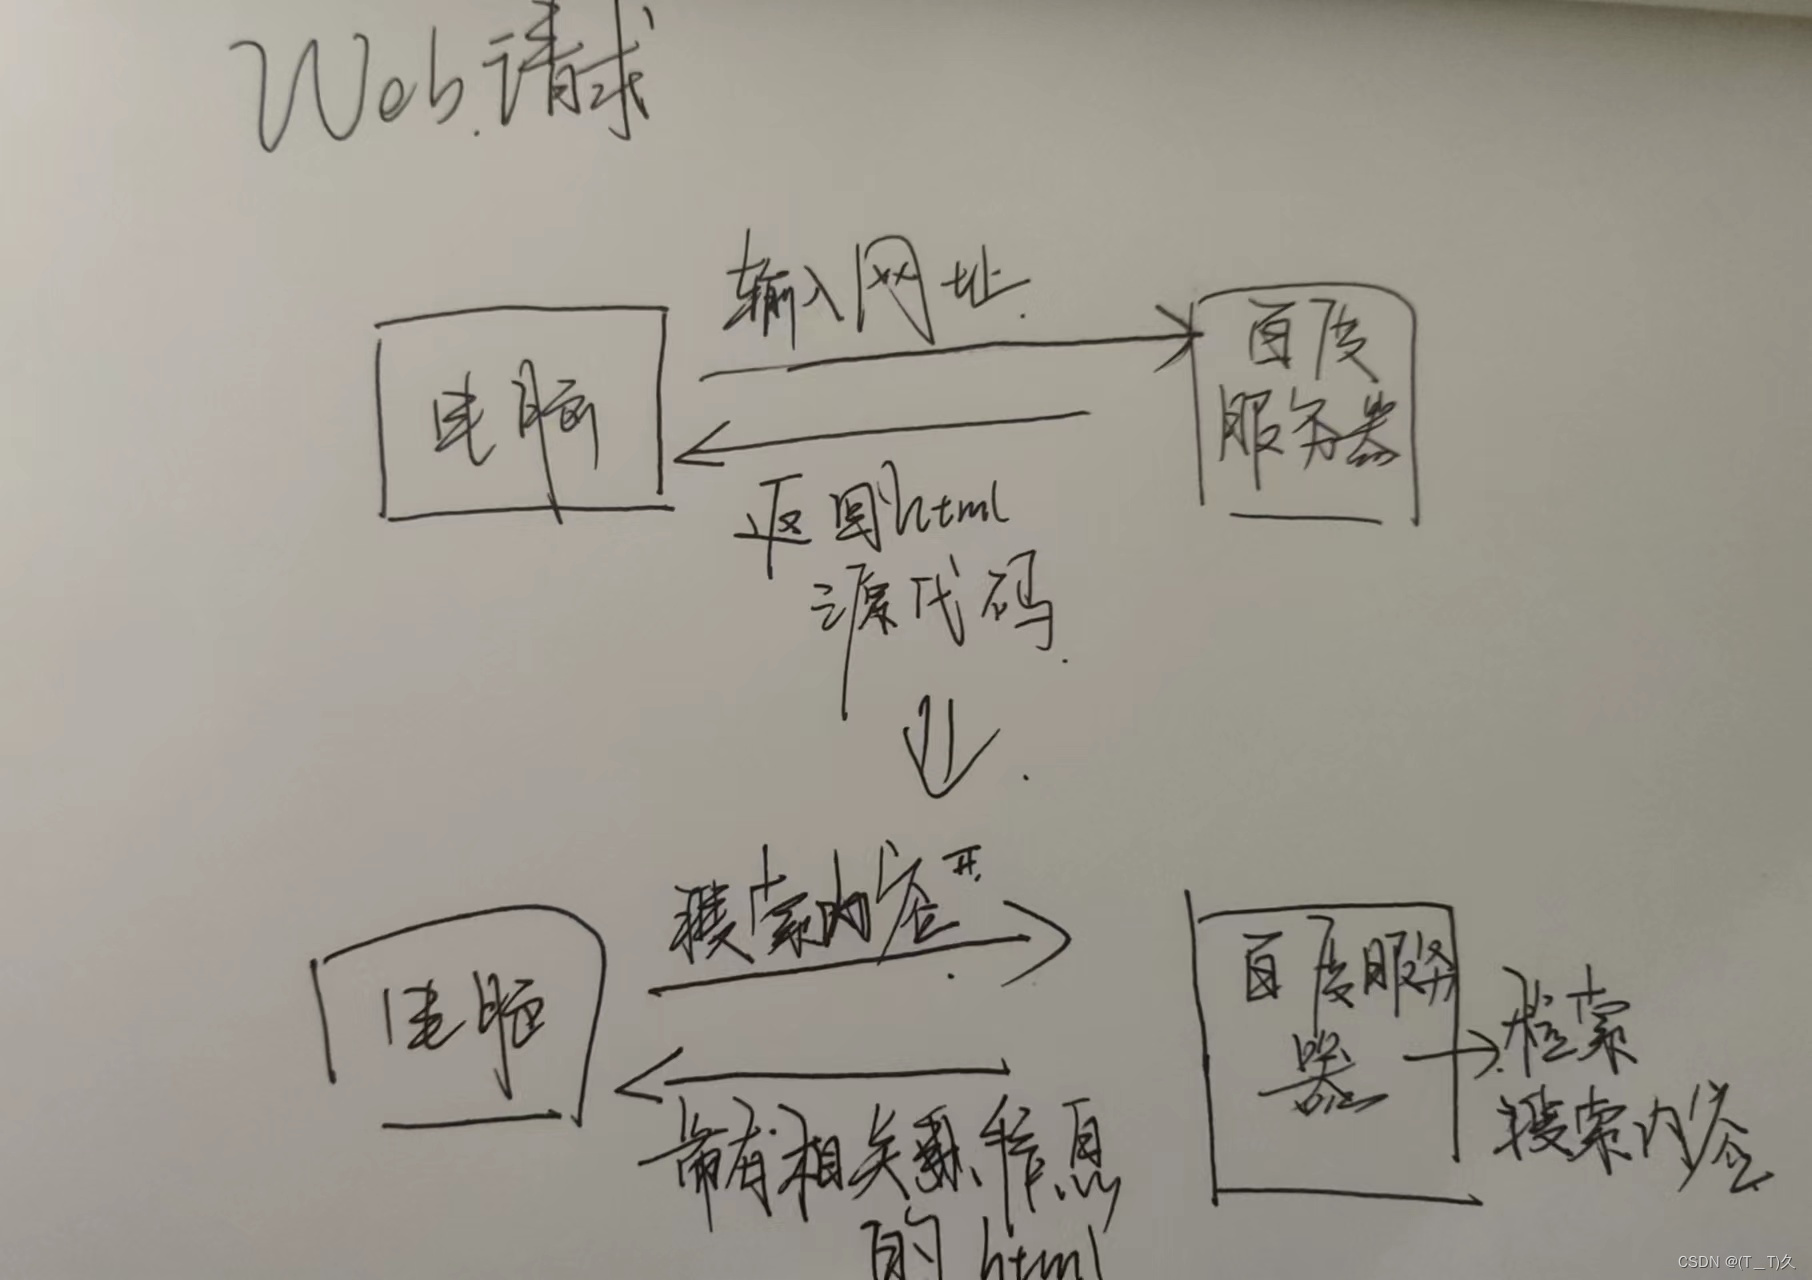 Web请求
输入网址
电脑
百度
服务器
返回html
源代码
搜索内容
电脑
百度服务
器
检索
搜索内容
带有相关联信息
的html
CSDN @(T＿T)久